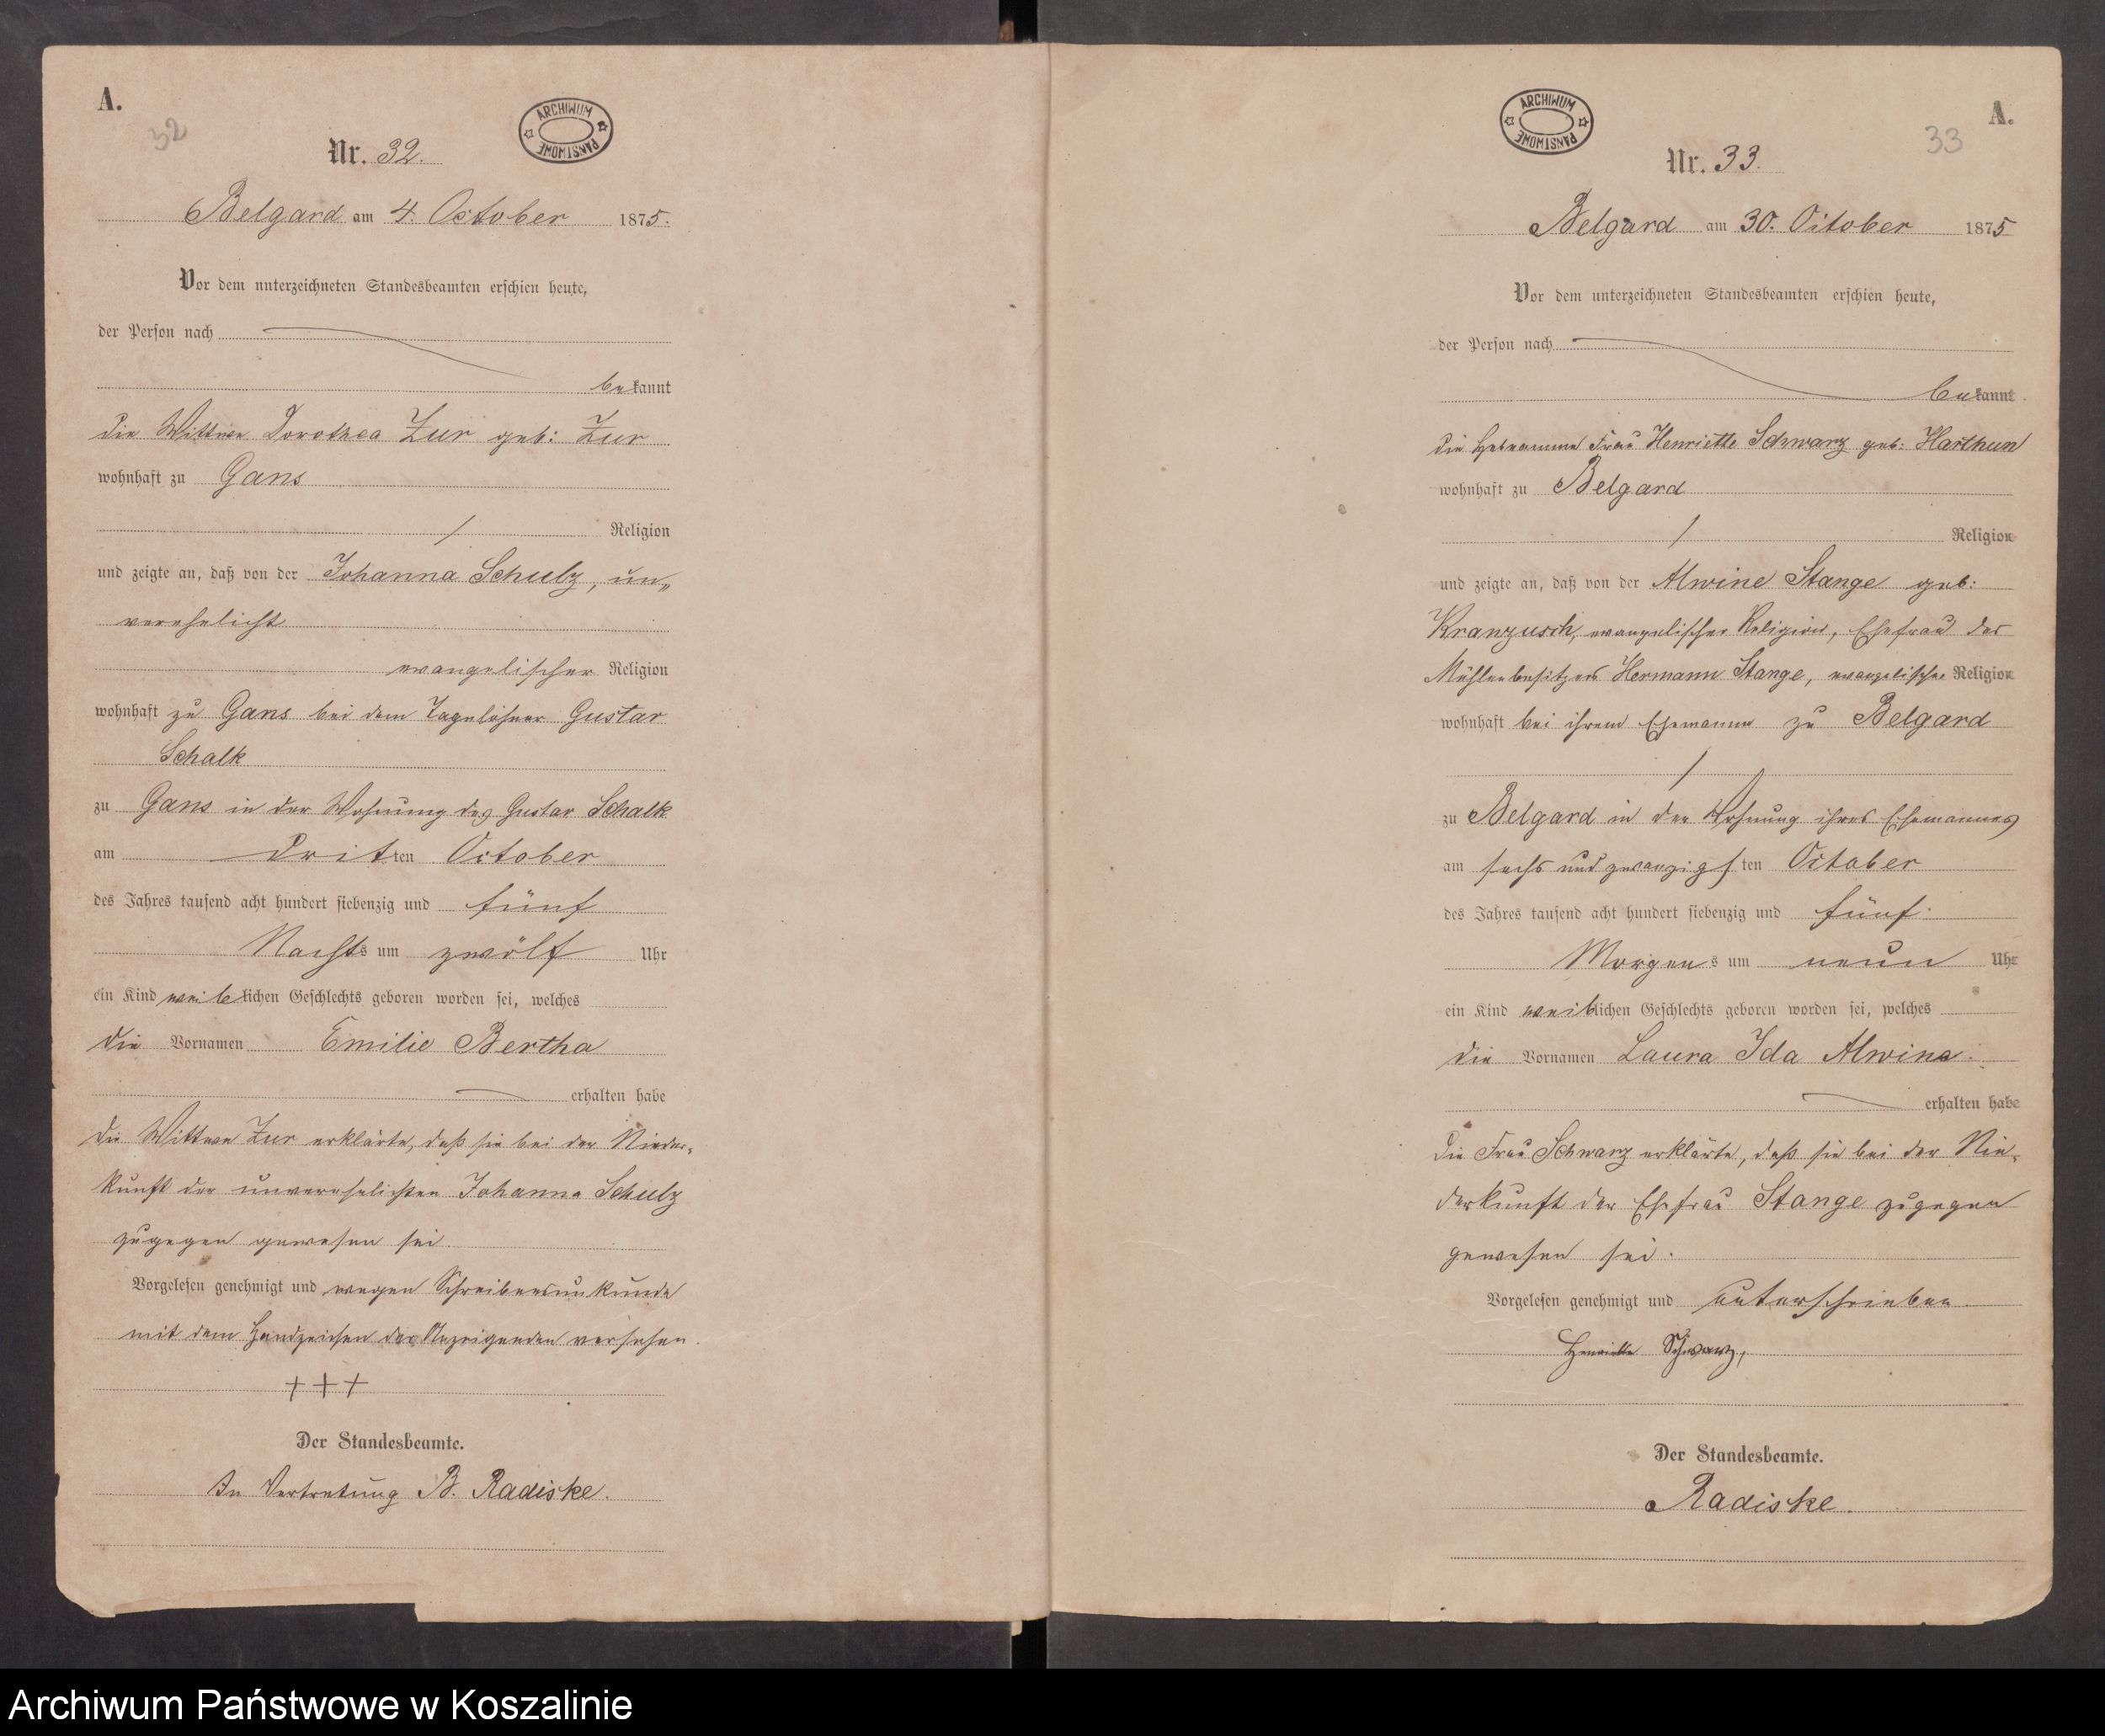 A.
32
ARCHIWUM PAŃSTWOWE
Nr. 32.
Belgard am 4. October 1875.
Vor dem unterzeichneten Standesbeamten erschien heute,
der Person nach
bekannt
die Wittwe Dorothea Zur geb: Zur
wohnhaft zu Gans
/ Religion
und zeigte an, daß von der Johanna Schulz, un„
verehelicht
evangelischer Religion
wohnhaft zu Gans bei dem Tagelöhner Gustav
Schalk
zu Gans in der Wohnung des Gustav Schalk
am dritten October
des Jahres tausend acht hundert siebenzig und fünf
Nachts um zwölf Uhr
ein Kind weiblichen Geschlechts geboren worden sei, welches
die Vornamen Emilie Bertha
erhalten habe
Die Wittwe Zur erklärte, daß sie bei der Nieder„
kunft der unverehelichten Johanna Schulz
zugegen gewesen sei.
Vorgelesen genehmigt und wegen Schreibensunkunde
mit dem Handzeichen der Anzeigenden versehen.
+++
Der Standesbeamte.
In Vertretung B. Radiske.
A.
33
ARCHIWUM PAŃSTWOWE
Nr. 33.
Belgard am 30. October 1875
Vor dem unterzeichneten Standesbeamten erschien heute,
der Person nach
bekannt
die Hebeamme Frau Henriette Schwarz geb: Harthun
wohnhaft zu Belgard
/ Religion
und zeigte an, daß von der Alwine Stange geb:
Kranzusch, evangelischer Religion, Ehefrau des
Mühlenbesitzers Hermann Stange, evangelischer Religion
wohnhaft bei ihrem Ehemanne zu Belgard
/
zu Belgard in der Wohnung ihres Ehemannes
am sechs und zwanzigsten October
des Jahres tausend acht hundert siebenzig und fünf.
Morgens um neun Uhr
ein Kind weiblichen Geschlechts geboren worden sei, welches
die Vornamen Laura Ida Alwine.
erhalten habe
Die Frau Schwarz erklärte, daß sie bei der Nie„
derkunft der Ehefrau Stange zugegen
gewesen sei.
Vorgelesen genehmigt und unterschrieben.
Henriette Schwarz,
Der Standesbeamte.
Radiske.
Archiwum Państwowe w Koszalinie